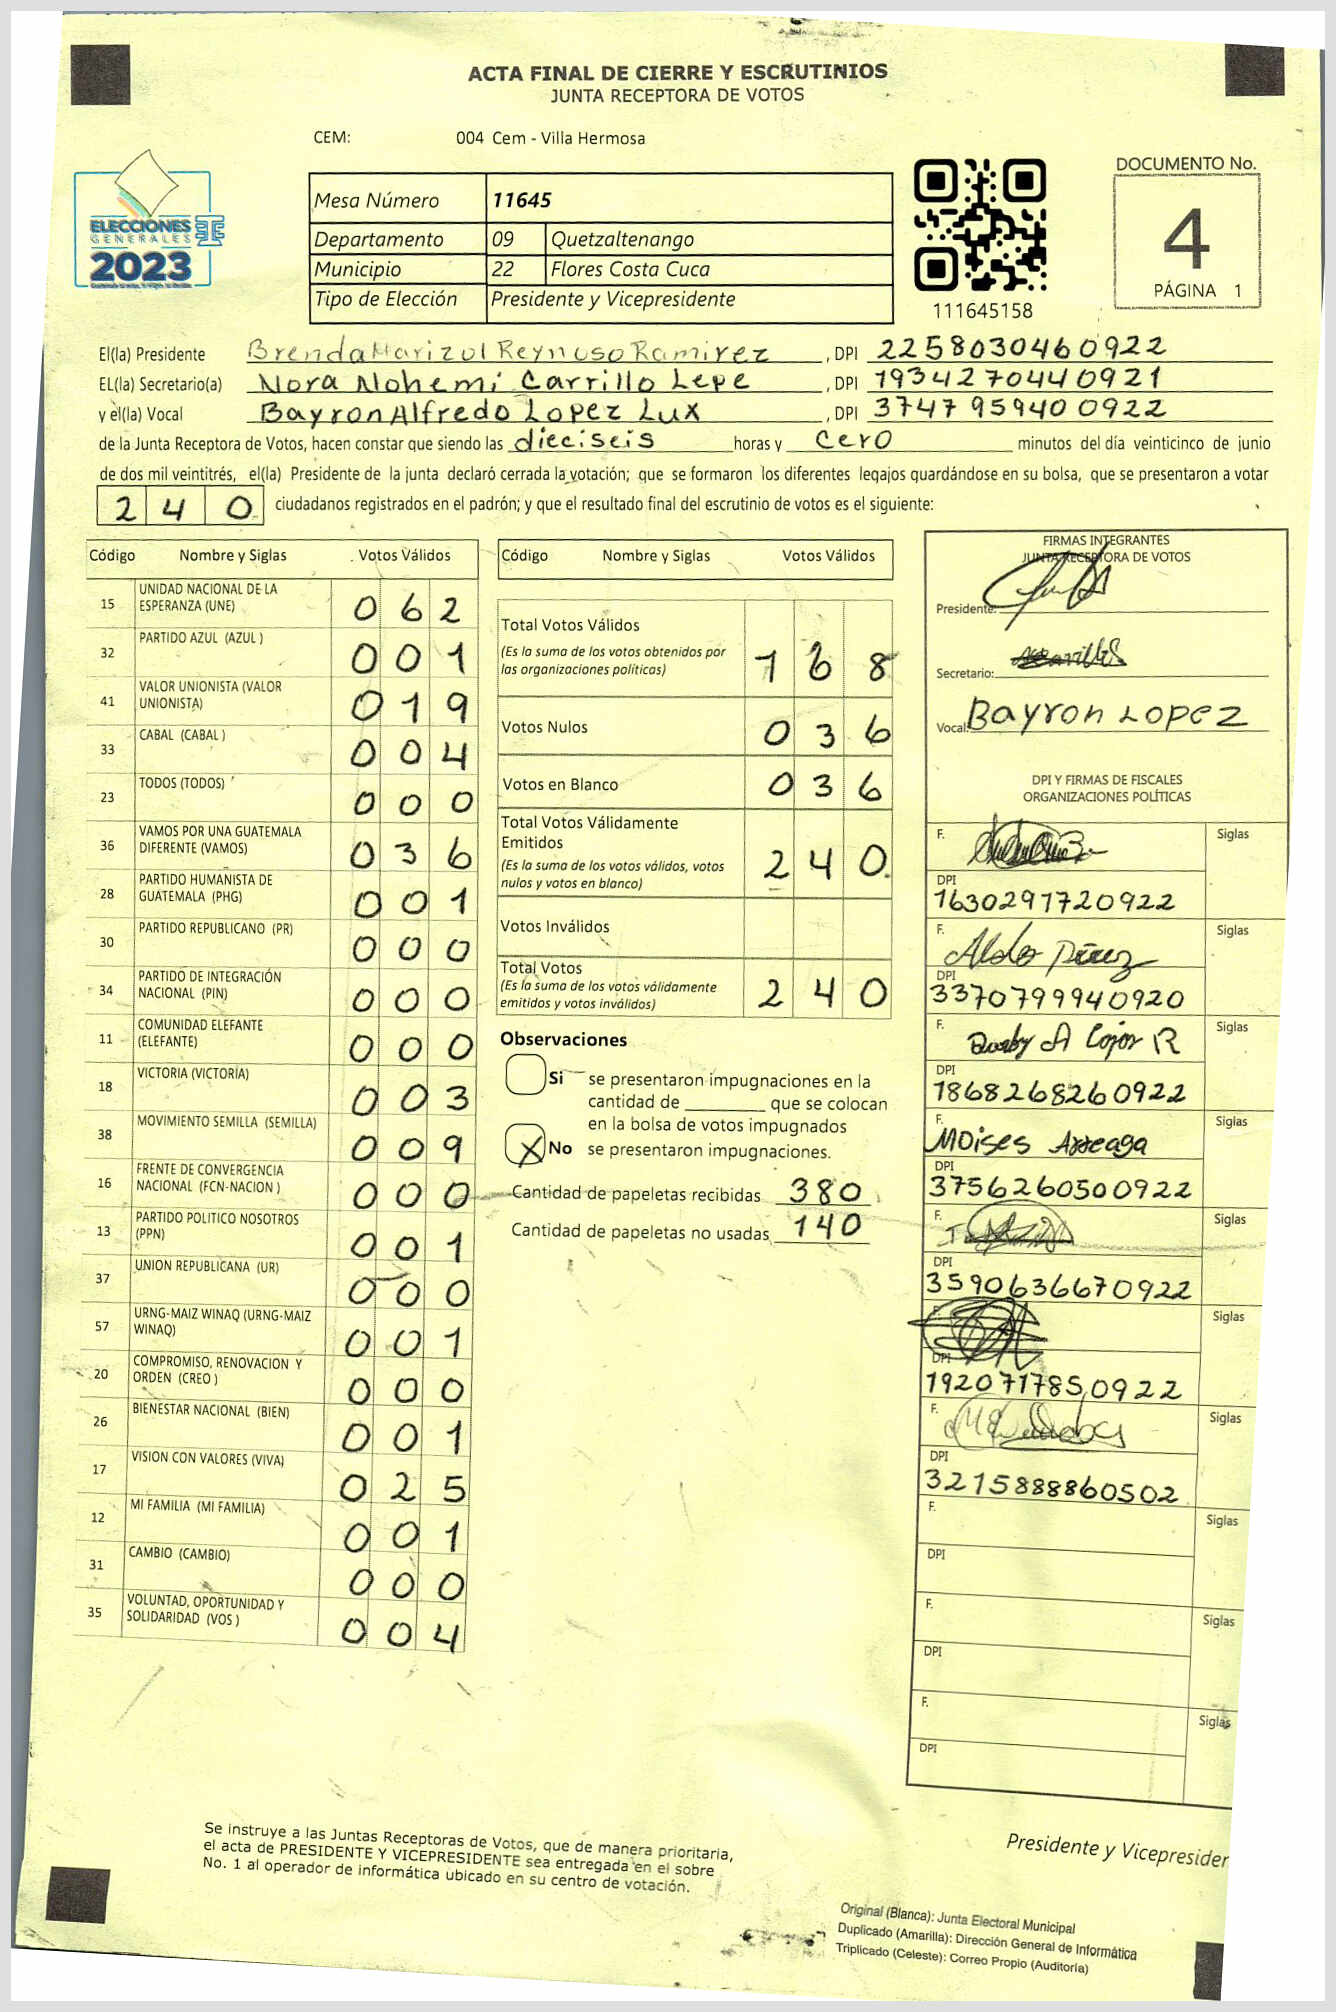 ACTA FINAL DE CIERRE Y ESCRUTINIOS
JUNTA RECEPTORA DE VOTOS
CEM: 004 Cem - Villa Hermosa
ELECCIONES
GENERALES
2023
Mesa Número 11645
Departamento 09 Quetzaltenango
Municipio 22 Flores Costa Cuca
Tipo de Elección Presidente y Vicepresidente
111645158
DOCUMENTO No.
4
PÁGINA 1
El(la) Presidente Brenda Marizol Reynoso Ramirez , DPI 2258030460922
EL(la) Secretario(a) Nora Nohemi Carrillo Lepe , DPI 1934270440921
y el(la) Vocal Bayron Alfredo Lopez Lux , DPI 3747959400922
de la Junta Receptora de Votos, hacen constar que siendo las dieciseis horas y cero minutos del día veinticinco de junio
de dos mil veintitrés, el(la) Presidente de la junta declaró cerrada la votación; que se formaron los diferentes legajos guardándose en su bolsa, que se presentaron a votar
240 ciudadanos registrados en el padrón; y que el resultado final del escrutinio de votos es el siguiente:
Código Nombre y Siglas Votos Válidos
15 UNIDAD NACIONAL DE LA
ESPERANZA (UNE) 062
32 PARTIDO AZUL (AZUL ) 001
41 VALOR UNIONISTA (VALOR
UNIONISTA) 019
33 CABAL (CABAL ) 004
23 TODOS (TODOS) 000
36 VAMOS POR UNA GUATEMALA
DIFERENTE (VAMOS) 036
28 PARTIDO HUMANISTA DE
GUATEMALA (PHG) 001
30 PARTIDO REPUBLICANO (PR) 000
34 PARTIDO DE INTEGRACIÓN
NACIONAL (PIN) 000
11 COMUNIDAD ELEFANTE
(ELEFANTE) 000
18 VICTORIA (VICTORIA) 003
38 MOVIMIENTO SEMILLA (SEMILLA) 009
16 FRENTE DE CONVERGENCIA
NACIONAL (FCN-NACION ) 000
13 PARTIDO POLITICO NOSOTROS
(PPN) 001
37 UNION REPUBLICANA (UR) 000
57 URNG-MAIZ WINAQ (URNG-MAIZ
WINAQ) 001
20 COMPROMISO, RENOVACION Y
ORDEN (CREO ) 000
26 BIENESTAR NACIONAL (BIEN) 001
17 VISION CON VALORES (VIVA) 025
12 MI FAMILIA (MI FAMILIA) 001
31 CAMBIO (CAMBIO) 000
35 VOLUNTAD, OPORTUNIDAD Y
SOLIDARIDAD (VOS ) 004
Código Nombre y Siglas Votos Válidos
Total Votos Válidos
(Es la suma de los votos obtenidos por
las organizaciones politicas) 168
Votos Nulos 036
Votos en Blanco 036
Total Votos Válidamente
Emitidos
(Es la suma de los votos válidos, votos
nulos y votos en blanco) 240
Votos Inválidos
Total Votos
(Es la suma de los votos válidamente
emitidos y votos inválidos) 240
Observaciones
Si se presentaron impugnaciones en la
cantidad de ________ que se colocan
en la bolsa de votos impugnados
X No se presentaron impugnaciones.
Cantidad de papeletas recibidas 380
Cantidad de papeletas no usadas 140
FIRMAS INTEGRANTES
JUNTA RECEPTORA DE VOTOS
Presidente:
Secretario:
Vocal: Bayron Lopez
DPI Y FIRMAS DE FISCALES
ORGANIZACIONES POLÍTICAS
F. Siglas
DPI
1630291720922
F. Aldo Pérez Siglas
DPI
3370799940920
F. Siglas
DPI
1868268260922
F. Moises Arreaga Siglas
DPI
3756260500922
F. Siglas
DPI
3590636670922
F. Siglas
DPI
1920717850922
F. Siglas
DPI
3215888860502
F. Siglas
DPI
F. Siglas
DPI
F. Siglas
DPI
Se instruye a las Juntas Receptoras de Votos, que de manera prioritaria,
el acta de PRESIDENTE Y VICEPRESIDENTE sea entregada en el sobre
No. 1 al operador de informática ubicado en su centro de votación.
Presidente y Vicepresiden
Original (Blanca): Junta Electoral Municipal
Duplicado (Amarilla): Dirección General de Informática
Triplicado (Celeste): Correo Propio (Auditoría)